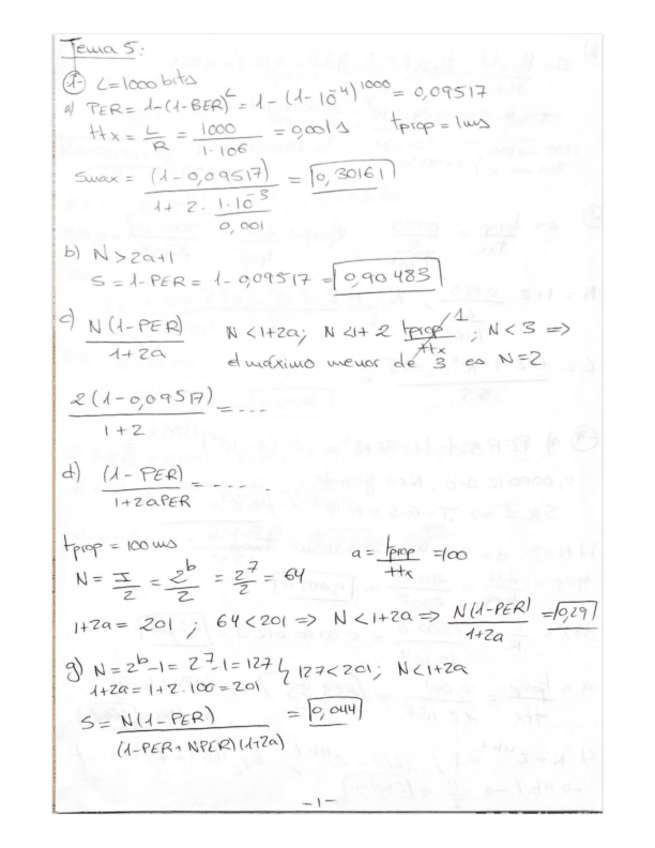 Tema 5:
1- L=1000 bits
a) PER = 1-(1-BER)^L = 1-(1-10^-4)^1000 = 0,09517
ttx = L/R = 1000/1·10^6 = 0,001 s tprop = 1ms
Smax = (1-0,09517)/(1+2·(1·10^-3/0,001)) = 0,30161
b) N>2a+1
S = 1-PER = 1-0,09517 = 0,90483
c) N(1-PER)/1+2a N<1+2a; N<1+2 tprop/ttx 1; N<3 =>
el máximo menor de 3 es N=2
2(1-0,09517)/1+2 = ....
d) (1-PER)/1+2aPER = .......
tprop = 100ms a = tprop/ttx = 100
N = I/2 = 2^b/2 = 2^7/2 = 64
1+2a = 201 ; 64<201 => N<1+2a => N(1-PER)/1+2a = 0,29
g) N=2^b-1= 2^7-1=127 127<201; N<1+2a
1+2a=1+2·100=201
S = N(1-PER)/(1-PER+NPER)(1+2a) = 0,044
-1-